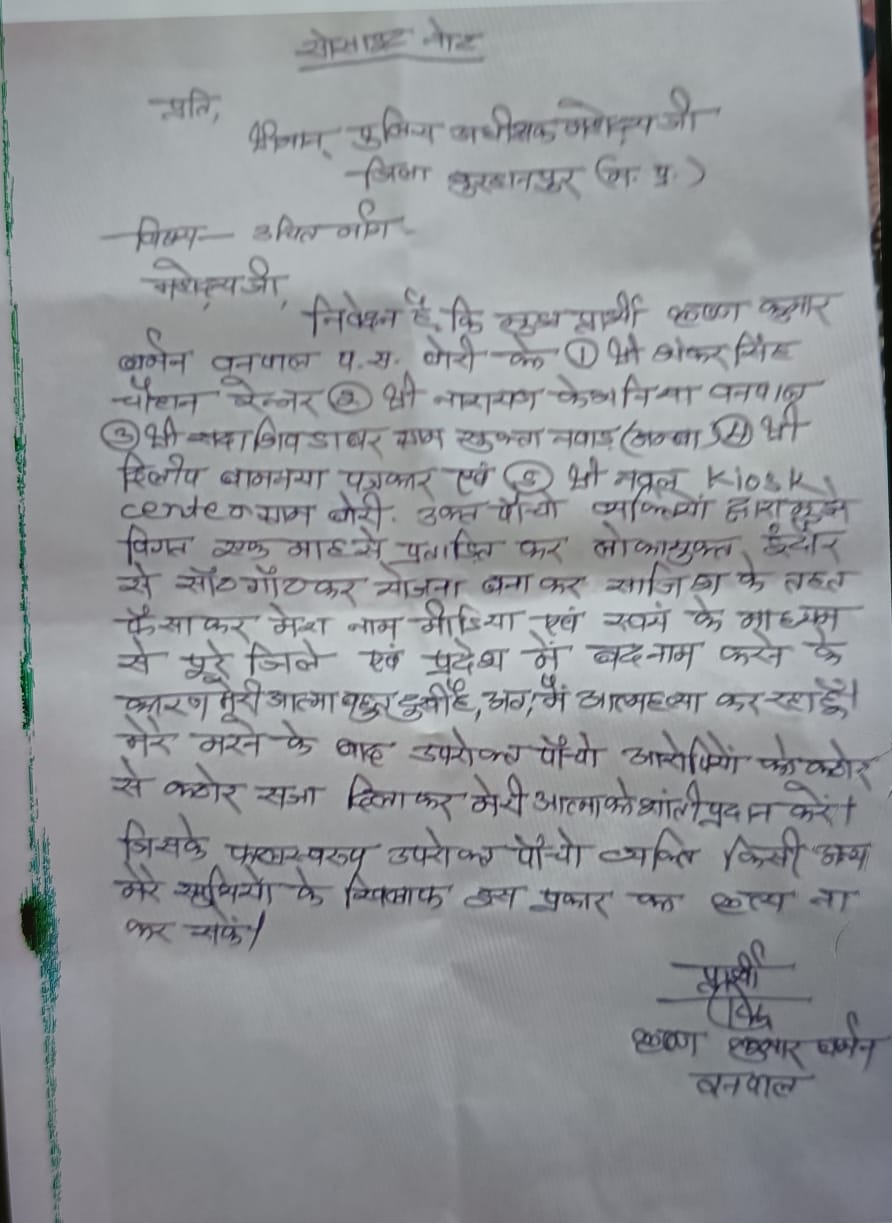 सोसाइट नोट
प्रति,
श्रीमान् पुलिस अधीक्षक महोदय जी
जिला बुरहानपुर (म. प्र.)
विषय— उचित मांग
महोदय जी,
निवेदन है, कि मुझ प्रार्थी कृष्ण कुमार
बर्मन वनपाल प. स. बोरी के ① श्री शंकर सिंह
चौहान रेन्जर ② श्री नारायण वनपाल
③ श्री सदाशिव डाबर ग्राम ④ श्री
दिलीप बामनया पत्रकार एवं ⑤ श्री नवल Kiosk
center ग्राम बोरी. उक्त पाँचो व्यक्तियों द्वारा मुझे
विगत एक माह से प्रताड़ित कर लोकायुक्त इंदौर
से साँठ गाँठ कर योजना बना कर साजिश के तहत
फँसाकर मेरा नाम मीडिया एवं स्वयं के माध्यम
से पूरे जिले एवं प्रदेश में बदनाम करने के
कारण मेरी आत्मा बहुत दुखी है, अतः मैं आत्महत्या कर रहा हूँ।
मेरे मरने के बाद उपरोक्त पाँचो आरोपियों को कठोर
से कठोर सजा दिलाकर मेरी आत्मा को शांती प्रदान करें।
जिसके फलस्वरूप उपरोक्त पाँचो व्यक्ति किसी अन्य
मेरे साथियो के खिलाफ इस प्रकार का कृत्य ना
कर सकें।
प्रार्थी
कृष्ण कुमार बर्मन
वनपाल